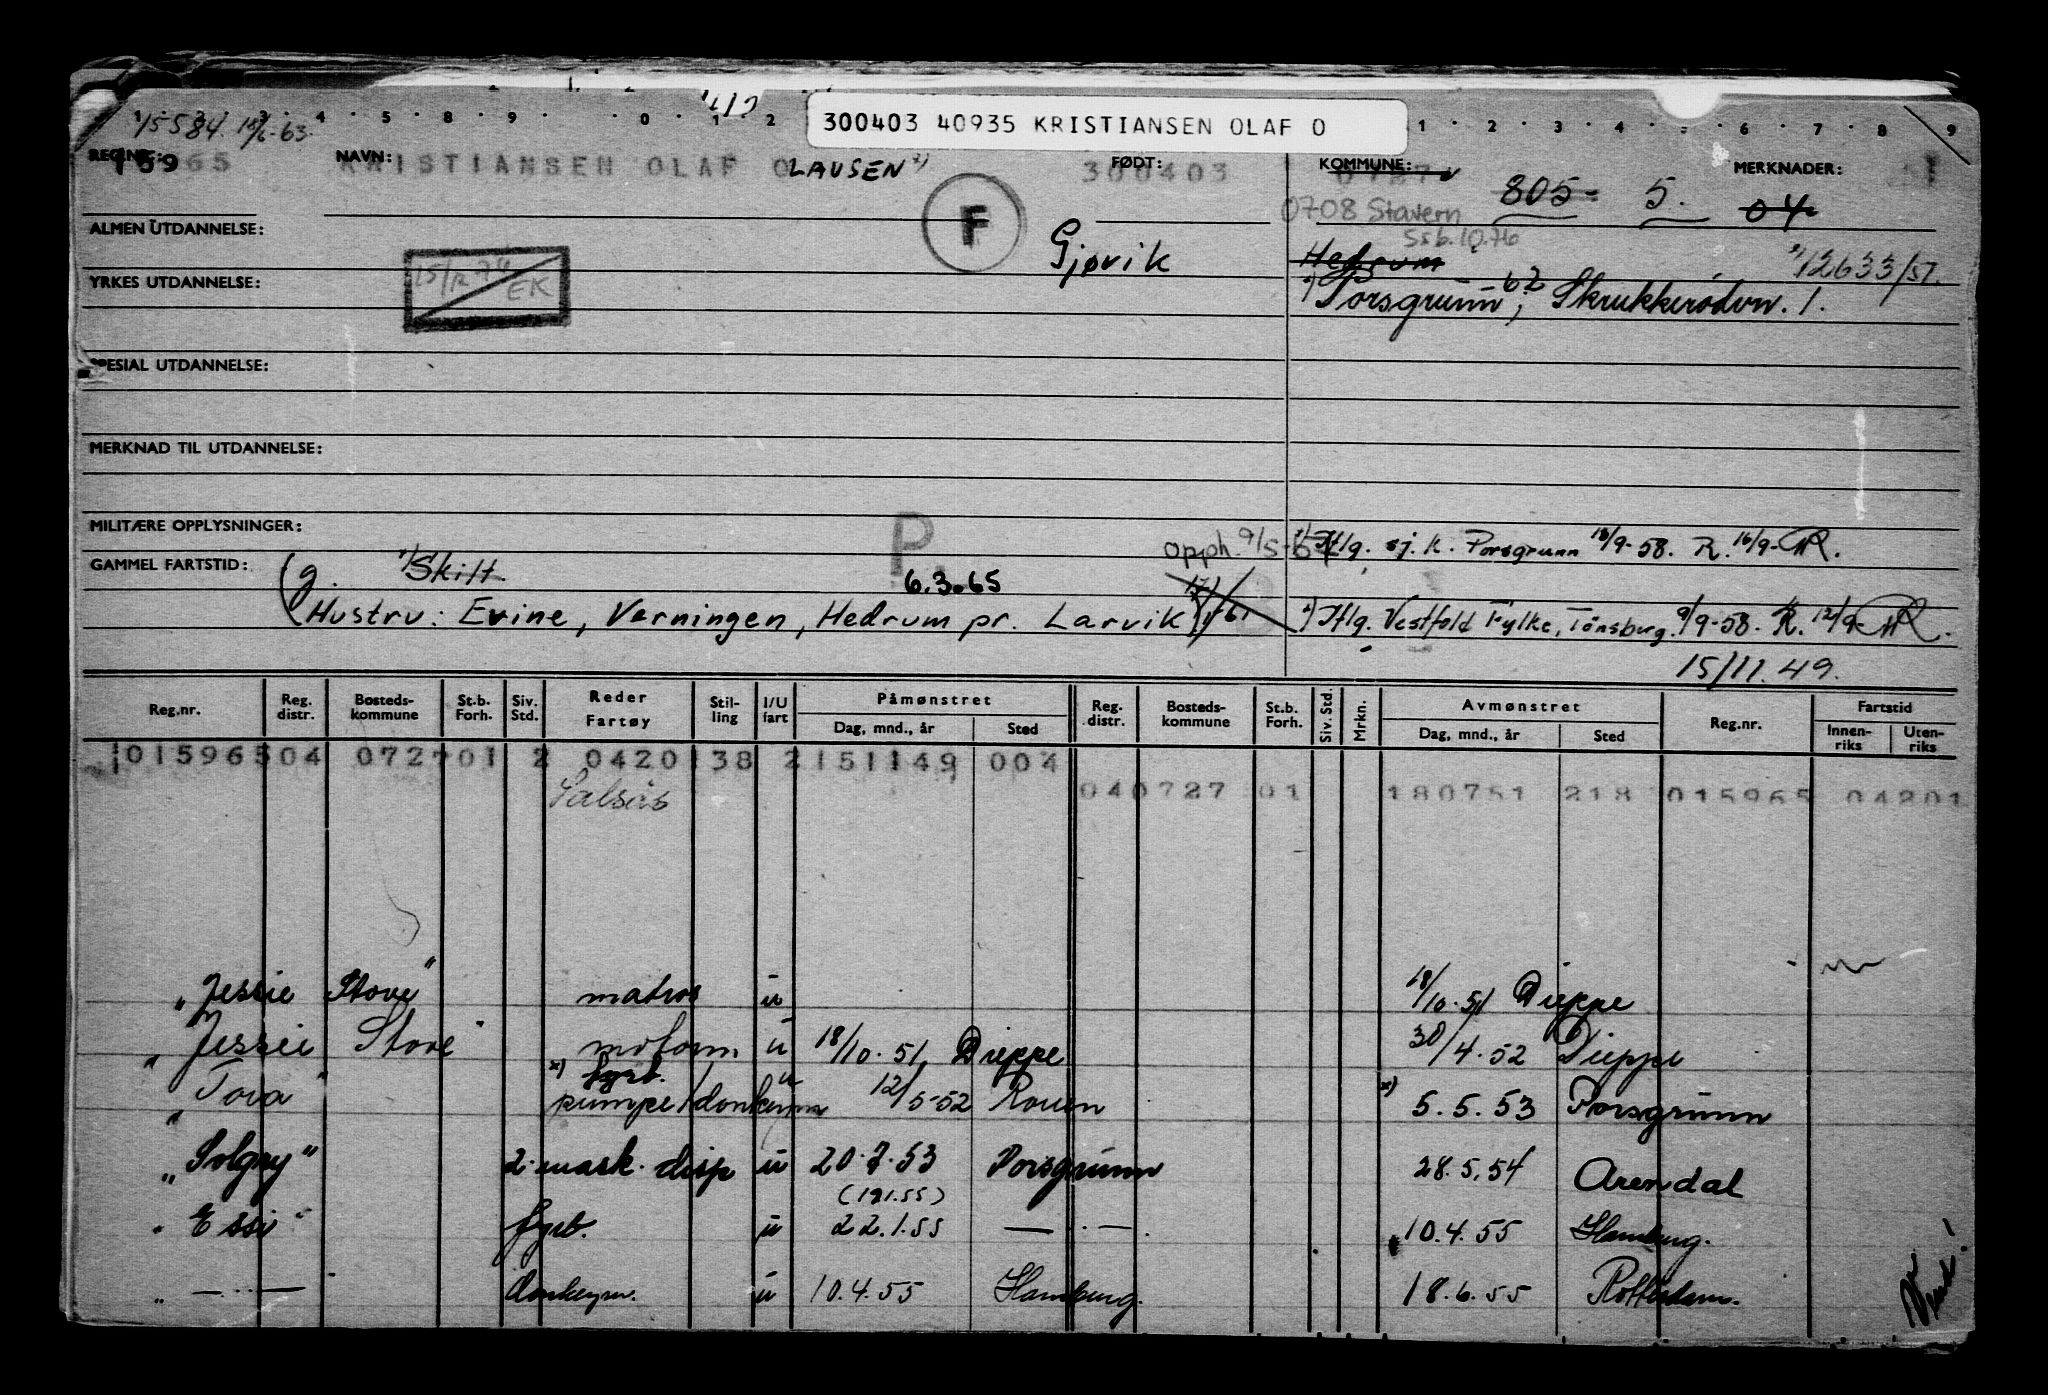 15584 15/6-63
300403 40935 KRISTIANSEN OLAF O
REG.NR.: 15965 NAVN: KRISTIANSEN OLAF OLAUSEN FØDT: 300403 KOMMUNE: 0727 MERKNADER:
805- 5. 04
0708 Stavern
Ssb. 10.76
ALMEN UTDANNELSE: F Gjøvik Hedrum 12633/57.
YRKES UTDANNELSE: 15/12 74 EK Porsgrunn, 62 Skrukkerødvn. 1.
SPESIAL UTDANNELSE:
MERKNAD TIL UTDANNELSE:
MILITÆRE OPPLYSNINGER: P. Opph. 9/5-6 Iflg. sj. k. Porsgrunn 18/9-58. R. 16/9-
GAMMEL FARTSTID: (g. Skilt 6.3.65
Hustru: Evine, Verningen, Hedrum pr. Larvik) Iflg. Vestfold Fylke, Tønsberg. 9/9-58. R. 12/9-
15/11.49.
Reg.nr. Reg. distr. Bosteds-kommune St.b. Forh. Siv. Std. Reder Fartøy Stil-ling I/U fart Påmønstret Dag, mnd., år Sted Reg. distr. Bosteds-kommune St.b. Forh. Siv. Std. Mrkn. Avmønstret Dag, mnd., år Sted Reg.nr. Fartstid Innen-riks Uten-riks
015965 04 0727 01 2 0420 138 2 151149 004
Salsås 04 0727 01 180751 218 015965 04201
"Jessie Stove" matros u 18/10.51 Dieppe
"Jessie Stove" motorm u 18/10.51 Dieppe 30/4.52 Dieppe
"Tova" x) fyrb. pumpe/donkeym u 12/5-52 Rouen x) 5.5.53 Porsgrunn
"Solgry" 2. mask. disp u 20.7.53 Porsgrunn 28.5.54 Arendal
(19.1.55)
"Essi" fyrb. u 22.1.55 — · — 10.4.55 Hamburg.
" — · — donkeym. u 10.4.55 Hamburg. 18.6.55 Rotterdam.